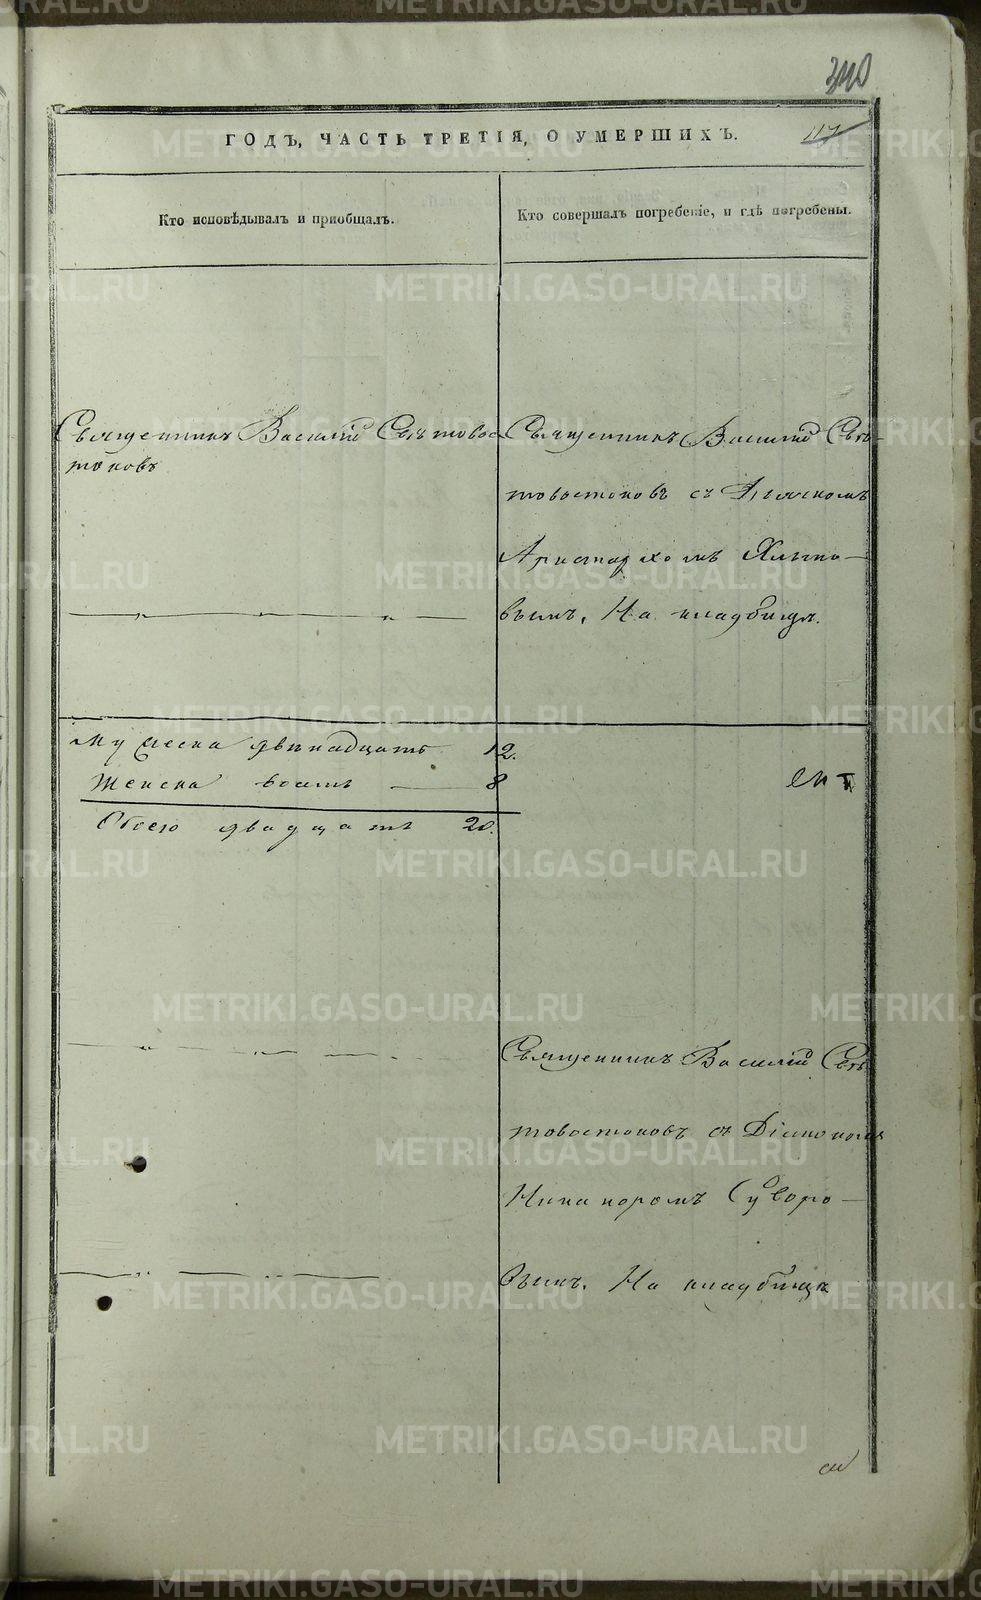 340
117
ГОДЪ, ЧАСТЬ ТРЕТІЯ, О УМЕРШИХЪ.
Кто исповѣдывалъ и пріобщалъ.
Кто совершалъ погребеніе, и гдѣ погребены.
Священникъ Василій Свѣтовос-
токовъ
Священникъ Василій Свѣ-
товостоковъ съ Дьячкомъ
Аристархомъ Хлыно-
вымъ, На кладбищѣ.
Мужеска двѣнадцать 12.
Женска восемь 8
Обоего двадцать 20.
Священникъ Василій Свѣ
товостоковъ съ Діакономъ
Никаноромъ Суворо-
вымъ. На кладбищѣ
METRIKI.GASO-URAL.RU